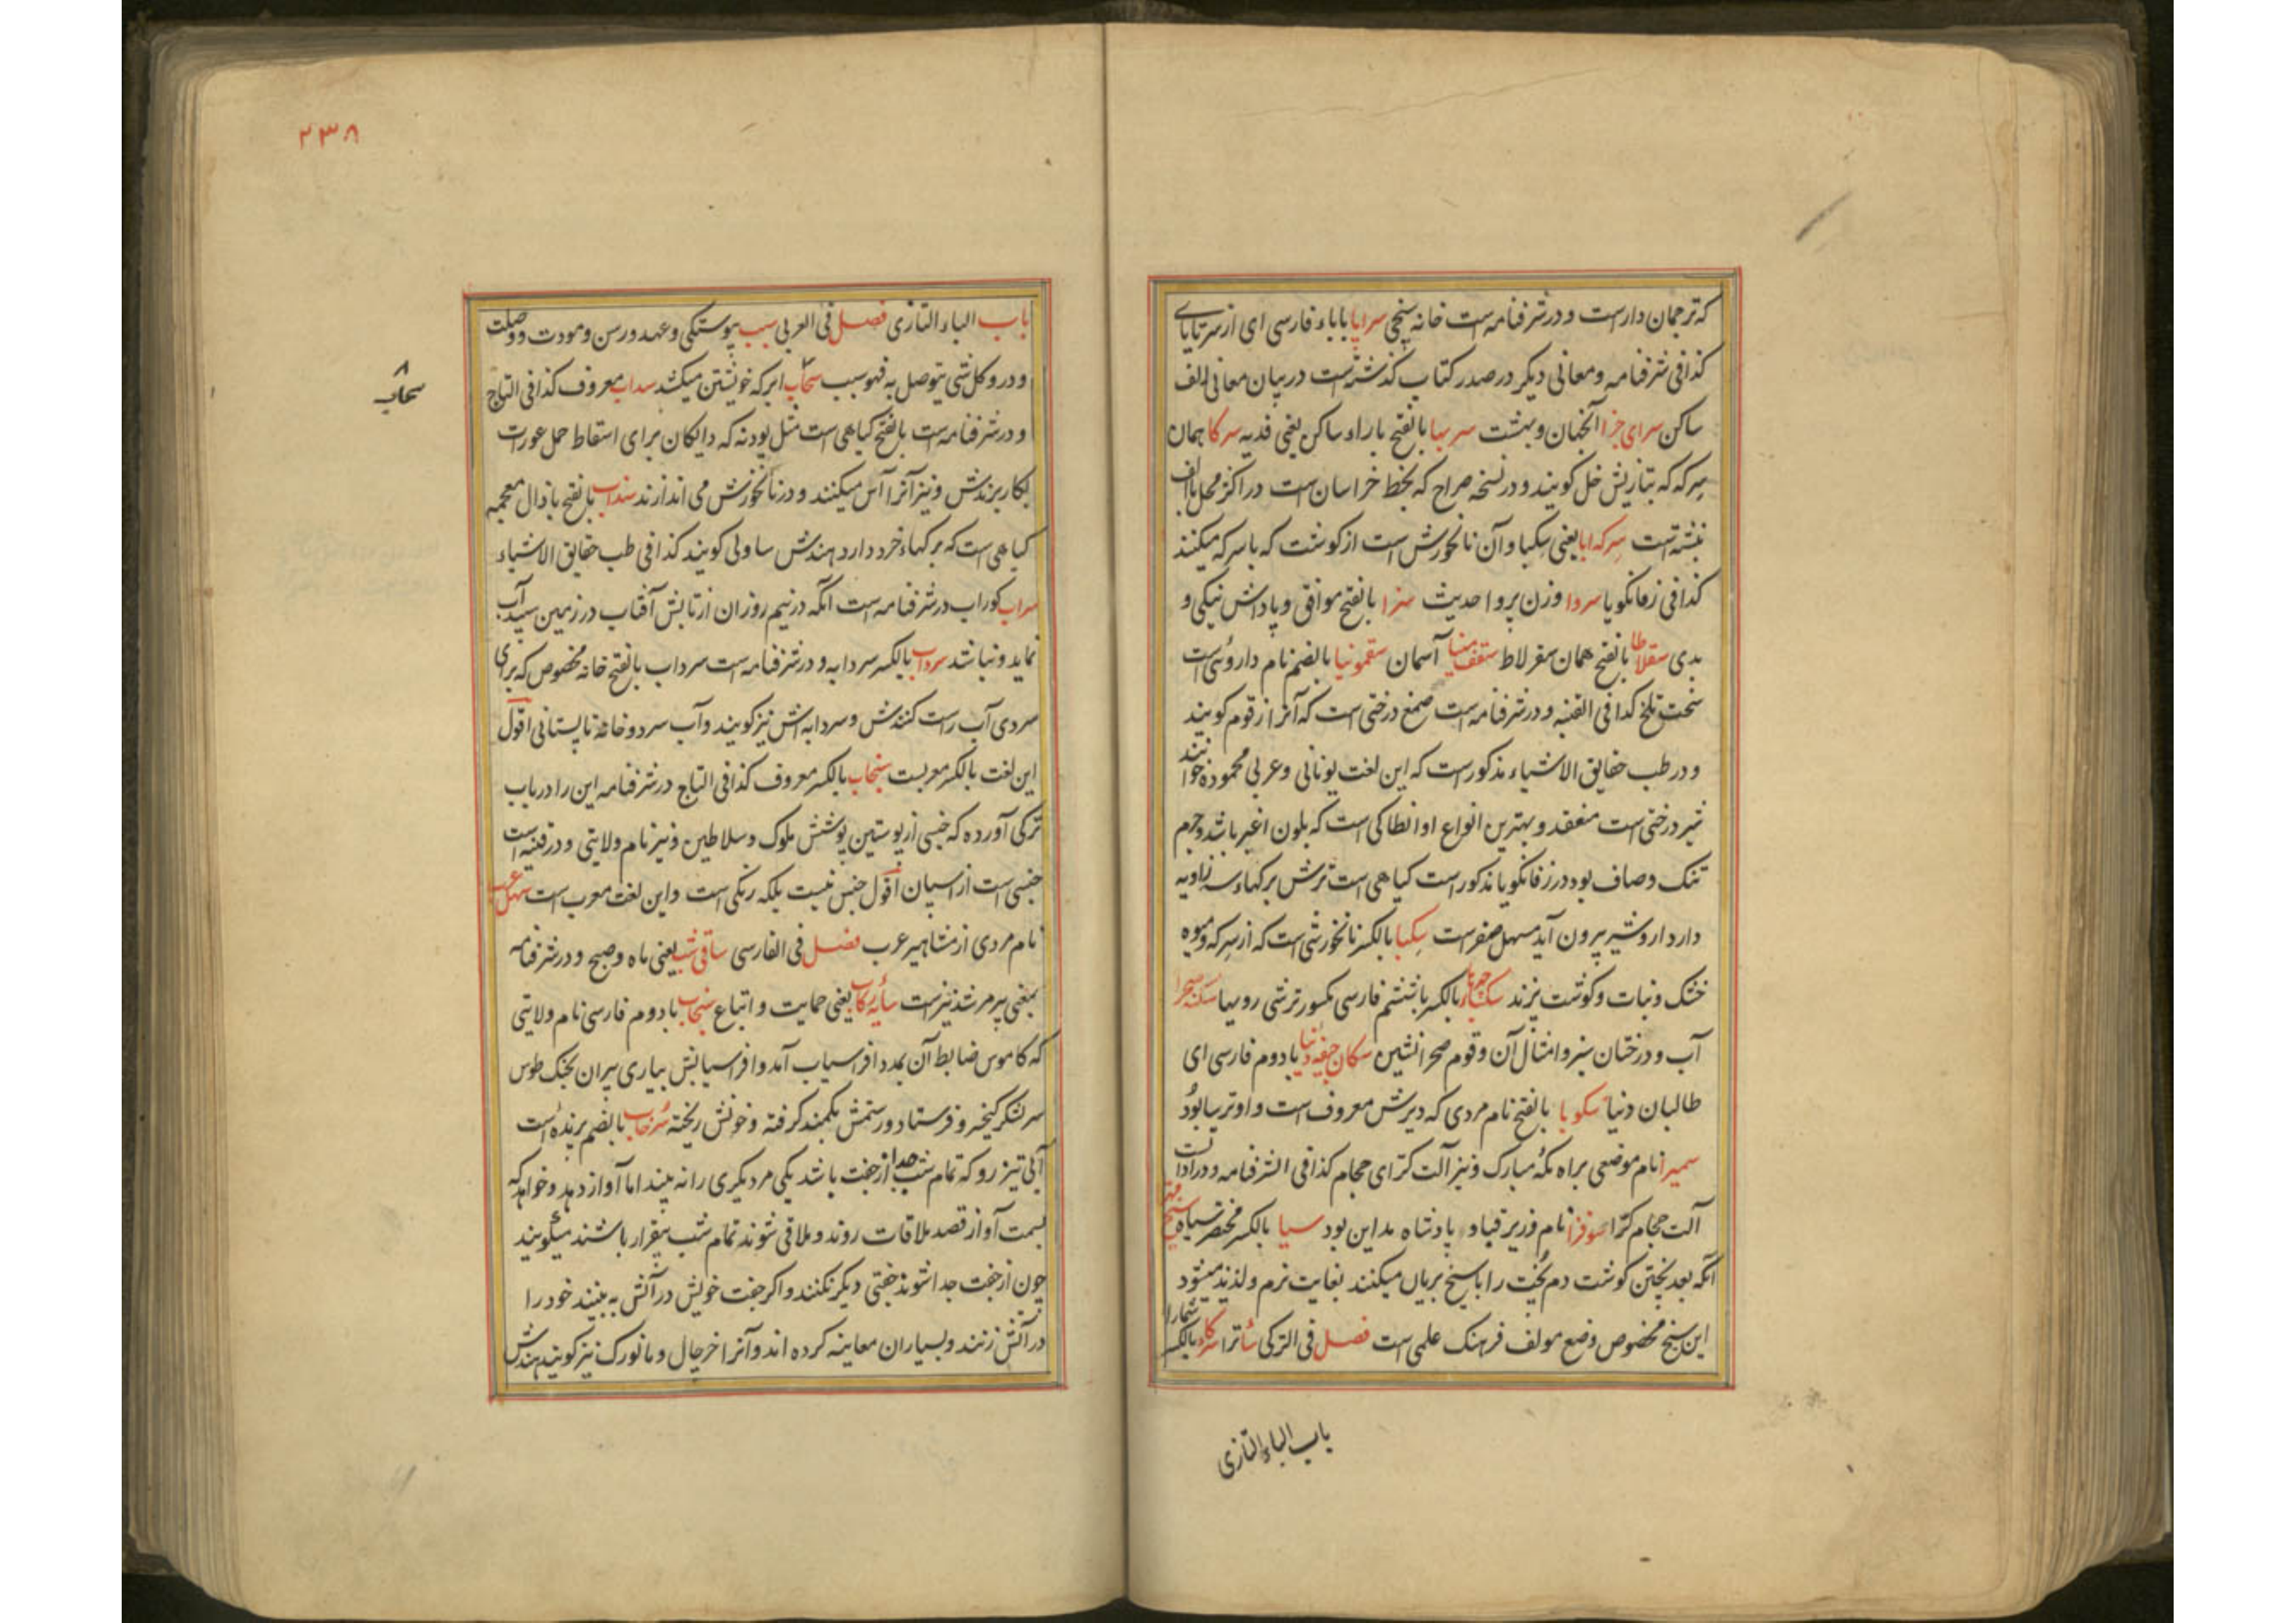 که ترجمان دارست و در شرفنامه است خانه سپنجی سراپا با باء فارسی ای از سر تا پای
کذا فی شرفنامه و معانی دیگر در صدر کتاب گذشته است در بیان معانی الف
ساکن سرای جزا آنجهان و بهشت سربها بالفتح با راء ساکن یعنی فدیه سرکا همان
سرکه که بتازیش خل گویند و در نسخه صراح که بخط خراسان است در اکثر محل باالف
نبشته است سرکه ابا یعنی سکبا و آن نانخورش است از گوشت که با سرکه میکنند
کذا فی زفانگویا سروا وزن پروا حدیث سزا بالفتح موافق و پاداش نیکی و
بدی سقلاطا بالفتح همان سقرلاط سقف مینا آسمان سقمونیا بالضم نام داروئی است
سخت تلخ کذا فی القنیه و در شرفنامه است صمغ درختی است که آنرا زقوم گویند
و در طب حقایق الاشیاء مذکور است که این لغت یونانی و عربی محموده خوانند
شیر درختی است منعقد و بهترین انواع او انطاکی است که بلون اغبر باشد و جرم
تنک و صاف بود در زفانگویا مذکور است گیاهی است ترش برگهاء سه زاویه
دارد از وشیر بیرون آید مسهل صفر است سکبا بالکسر نانخورشی است که از سرکه و میوه
خشک و نبات و گوشت پزند بالکسر با ششم فارسی مکسور ترشی رویها سکنه صحرا
آب و درختان سبز و امثال آن و قوم صحرانشین سگان جیفه دنیا با دوم فارسی ای
طالبان دنیا سکوبا بالفتح نام مردی که دیرش معروف است و او ترسا بود
سمیرا نام موضعی براه مکه مبارک و نیز آلت کرای حجام کذا فی الشرفنامه و در ادات
آلت حجام کرا سوفرا نام وزیر قباد بادشاه مداین بود سیا بالکسر مختصر سیاه
آنکه بعد پختن گوشت دم پخت را با سیخ بریان میکنند بغایت نرم و لذیذ میشود
این سیخ مخصوص وضع مولف فرهنگ علمی است فصل فی الترکی بالکسر شما را
باب الباء التازی
۲۳۸
باب الباء التازی فصل فی العربی سبب پیوستگی و عهد و رسن و مودت و وصلت
و در و کل شی یتوصل به فهو سبب سحاب ابر که خویشتن میکشد سداب معروف کذا فی التاج
سحاب
و در شرفنامه است بالفتح گیاهی است مثل پودنه که دایگان برای اسقاط حمل عورات
بکار برندش و نیز آنرا آس میکنند و در نانخورش می اندازند سذاب بالفتح با ذال معجمه
گیاهی است که برگهاء خرد دارد هندش ساولی گویند کذا فی طب حقایق الاشیاء
سراب کوراب در شرفنامه است آنکه در نیم روزان از تابش آفتاب در زمین سپید آب
نماید و نباشد سرداب بالکسر سردابه و در شرفنامه است سرداب بالفتح خانه مخصوص که برای
سردی آب راست کنندش و سردابه اش نیز گویند و آب سرد و خانه تابستانی اقول
این لغت بالکسر معربست سنجاب بالکسر معروف کذا فی التاج در شرفنامه این را در باب
ترکی آورده که جنسی از پوستین پوشش ملوک و سلاطین و نیز نام ولایتی و در قنیه است
جنسی است از اسپان اقول جنس نیست بلکه رنگی است و این لغت معرب است
نام مردی از مشاهیر عرب فصل فی الفارسی ساقی شب یعنی ماه و صبح و در شرفنامه
بمعنی پیر مرشد نیز است سایه رکاب یعنی حمایت و اتباع سنجاب با دوم فارسی نام ولایتی
که کاموس ضابط آن بمدد افراسیاب آمد و افراسیابش بیاری پیران بجنگ طوس
سر لشکر کیخسرو فرستاد و رستمش بکمند گرفته و خونش ریخته سرخاب بالضم پرنده است
آبی تیز رو که تمام شب جدا از جفت باشد یکی مر دیگری را نه بیند اما آواز دهد و خواهد که
بسمت آواز قصد ملاقات روند و ملاقی شوند تمام شب بیقرار باشند میگویند
چون از جفت جدا شوند جفتی دیگر نکنند و اگر جفت خویش در آتش به بیند خود را
در آتش زنند و بسیاران معاینه کرده اند و آنرا خرچال و مانورک نیز گویند هندش